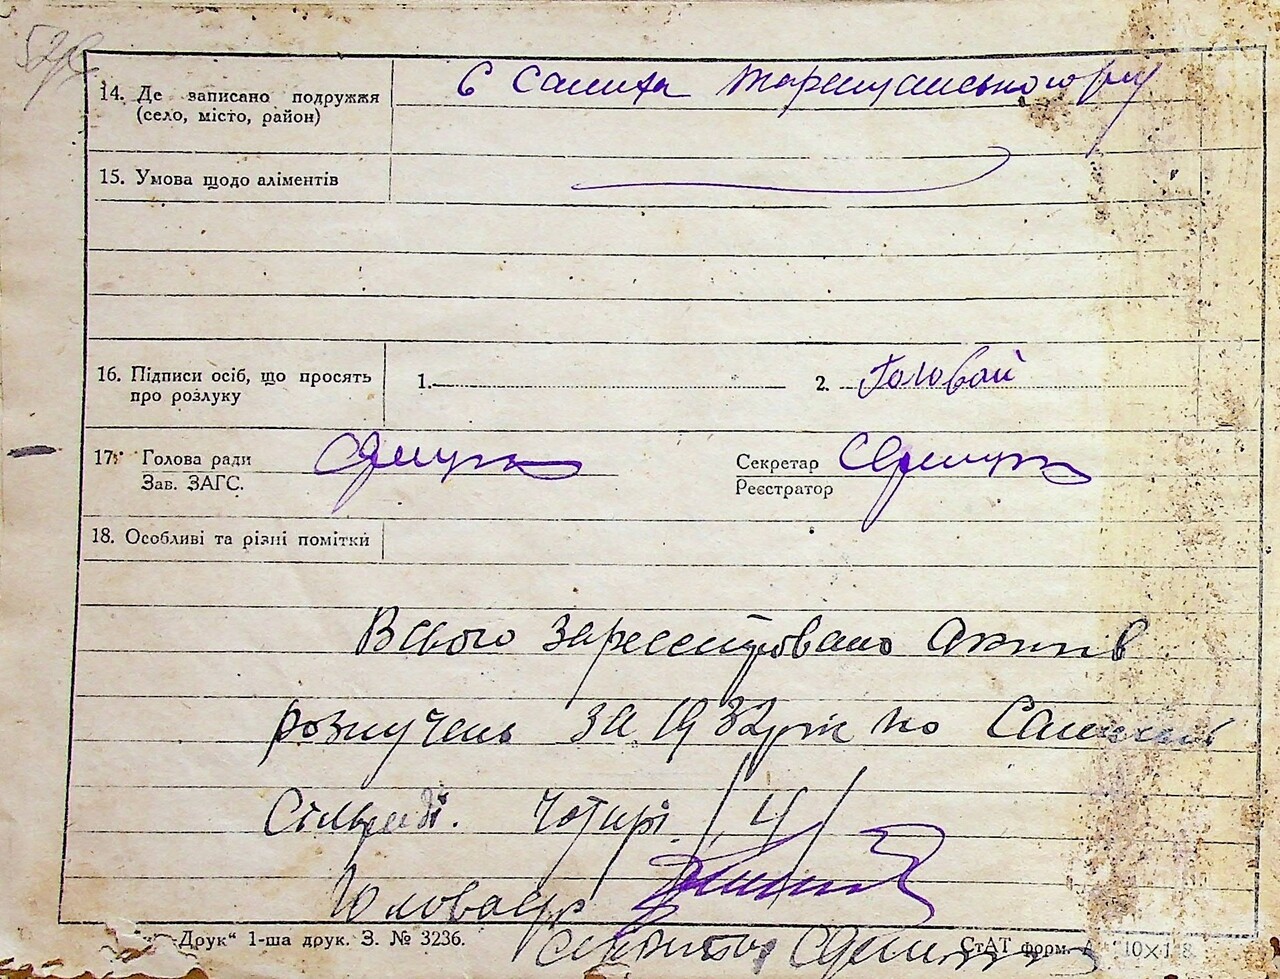 14. Де записано подружжя
(село, місто, район)
С Салиха Таращанського р/ну
15. Умова щодо аліментів
16. Підписи осіб, що просять
про розлуку
1.
2. Головай
17. Голова ради
Зав. ЗАГС.
Секретар
Реєстратор
18. Особливі та різні помітки
Всього зареєстровано актів
розлучень за 1932 рік по
Сільраді. Чотири /4/
Голова с/р
Друк" 1-ша друк. З. № 3236.
Секретар
СтАТ форм.